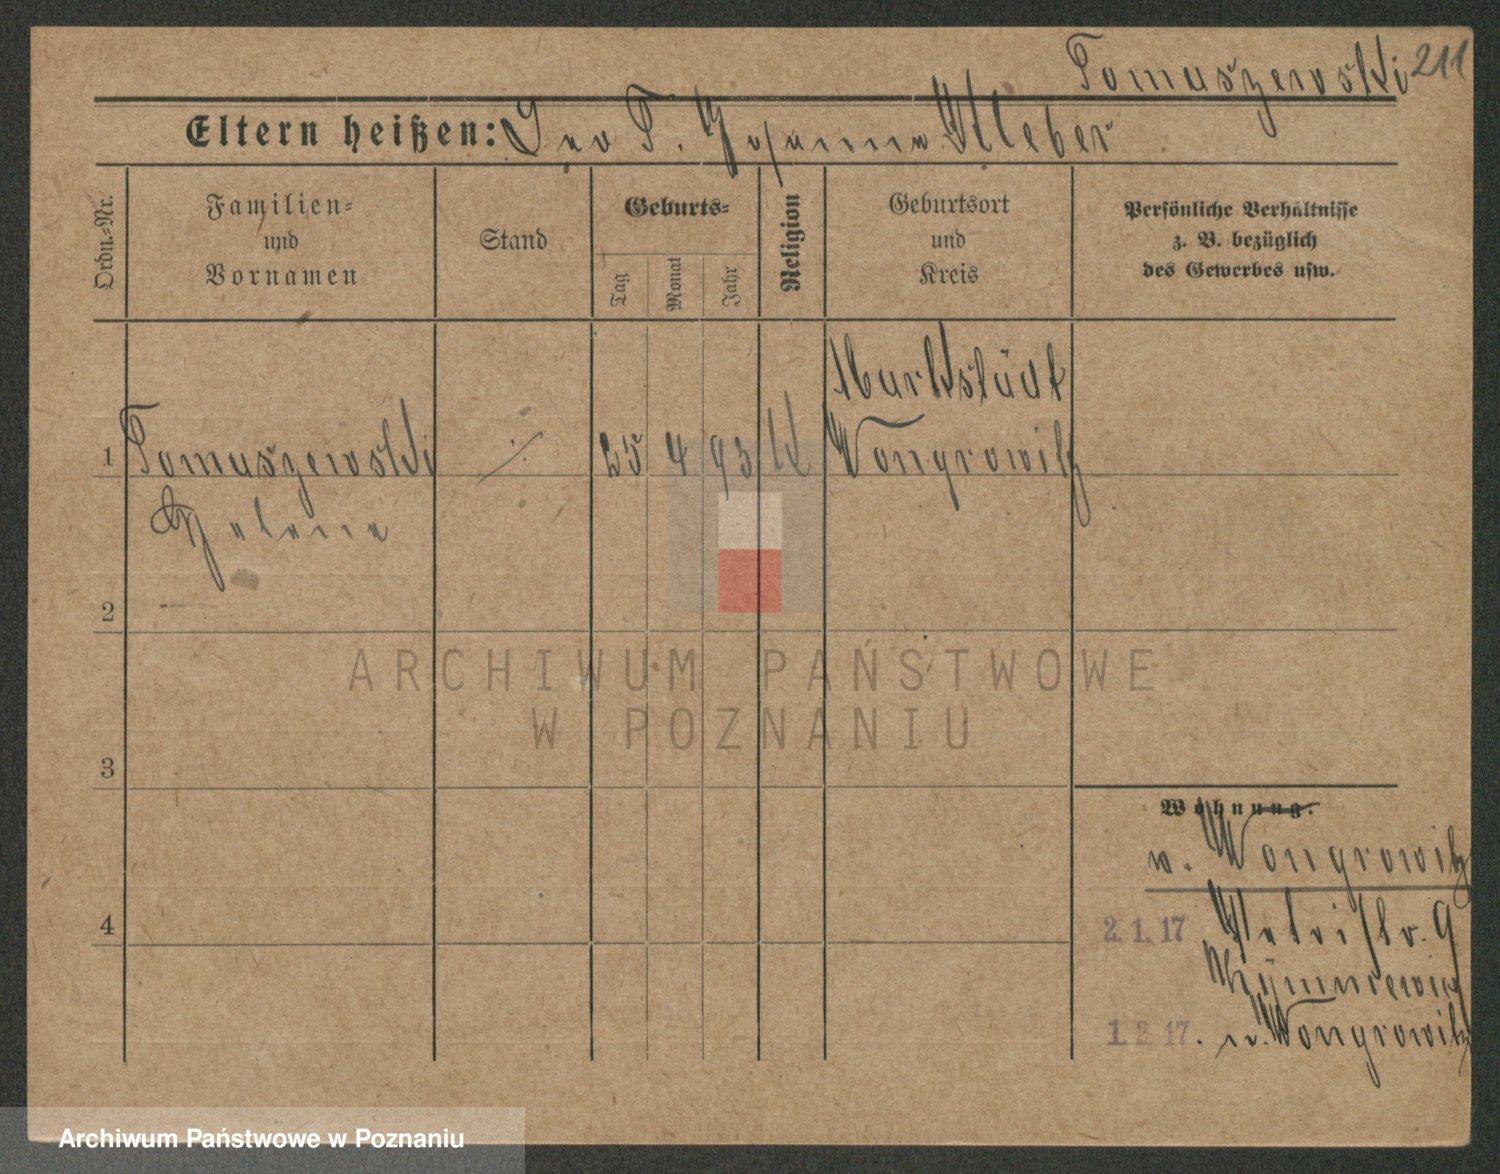 Tomaszewski 211
Eltern heißen: Leo T. Johanna Kleber
Ordn.-Nr.
Familien-
und
Vornamen
Stand
Geburts-
Tag
Monat
Jahr
Religion
Geburtsort
und
Kreis
Persönliche Verhältnisse
z. B. bezüglich
des Gewerbes usw.
Marktstädt
1 Tomaszewski ./. 25 4 93 K Wongrowitz
Helene
2
3
4
Wohnung.
v. Wongrowitz
2.1.17 Petristr. 9
1.2.17. n. Wongrowitz
ARCHIWUM PAŃSTWOWE
W POZNANIU
Archiwum Państwowe w Poznaniu